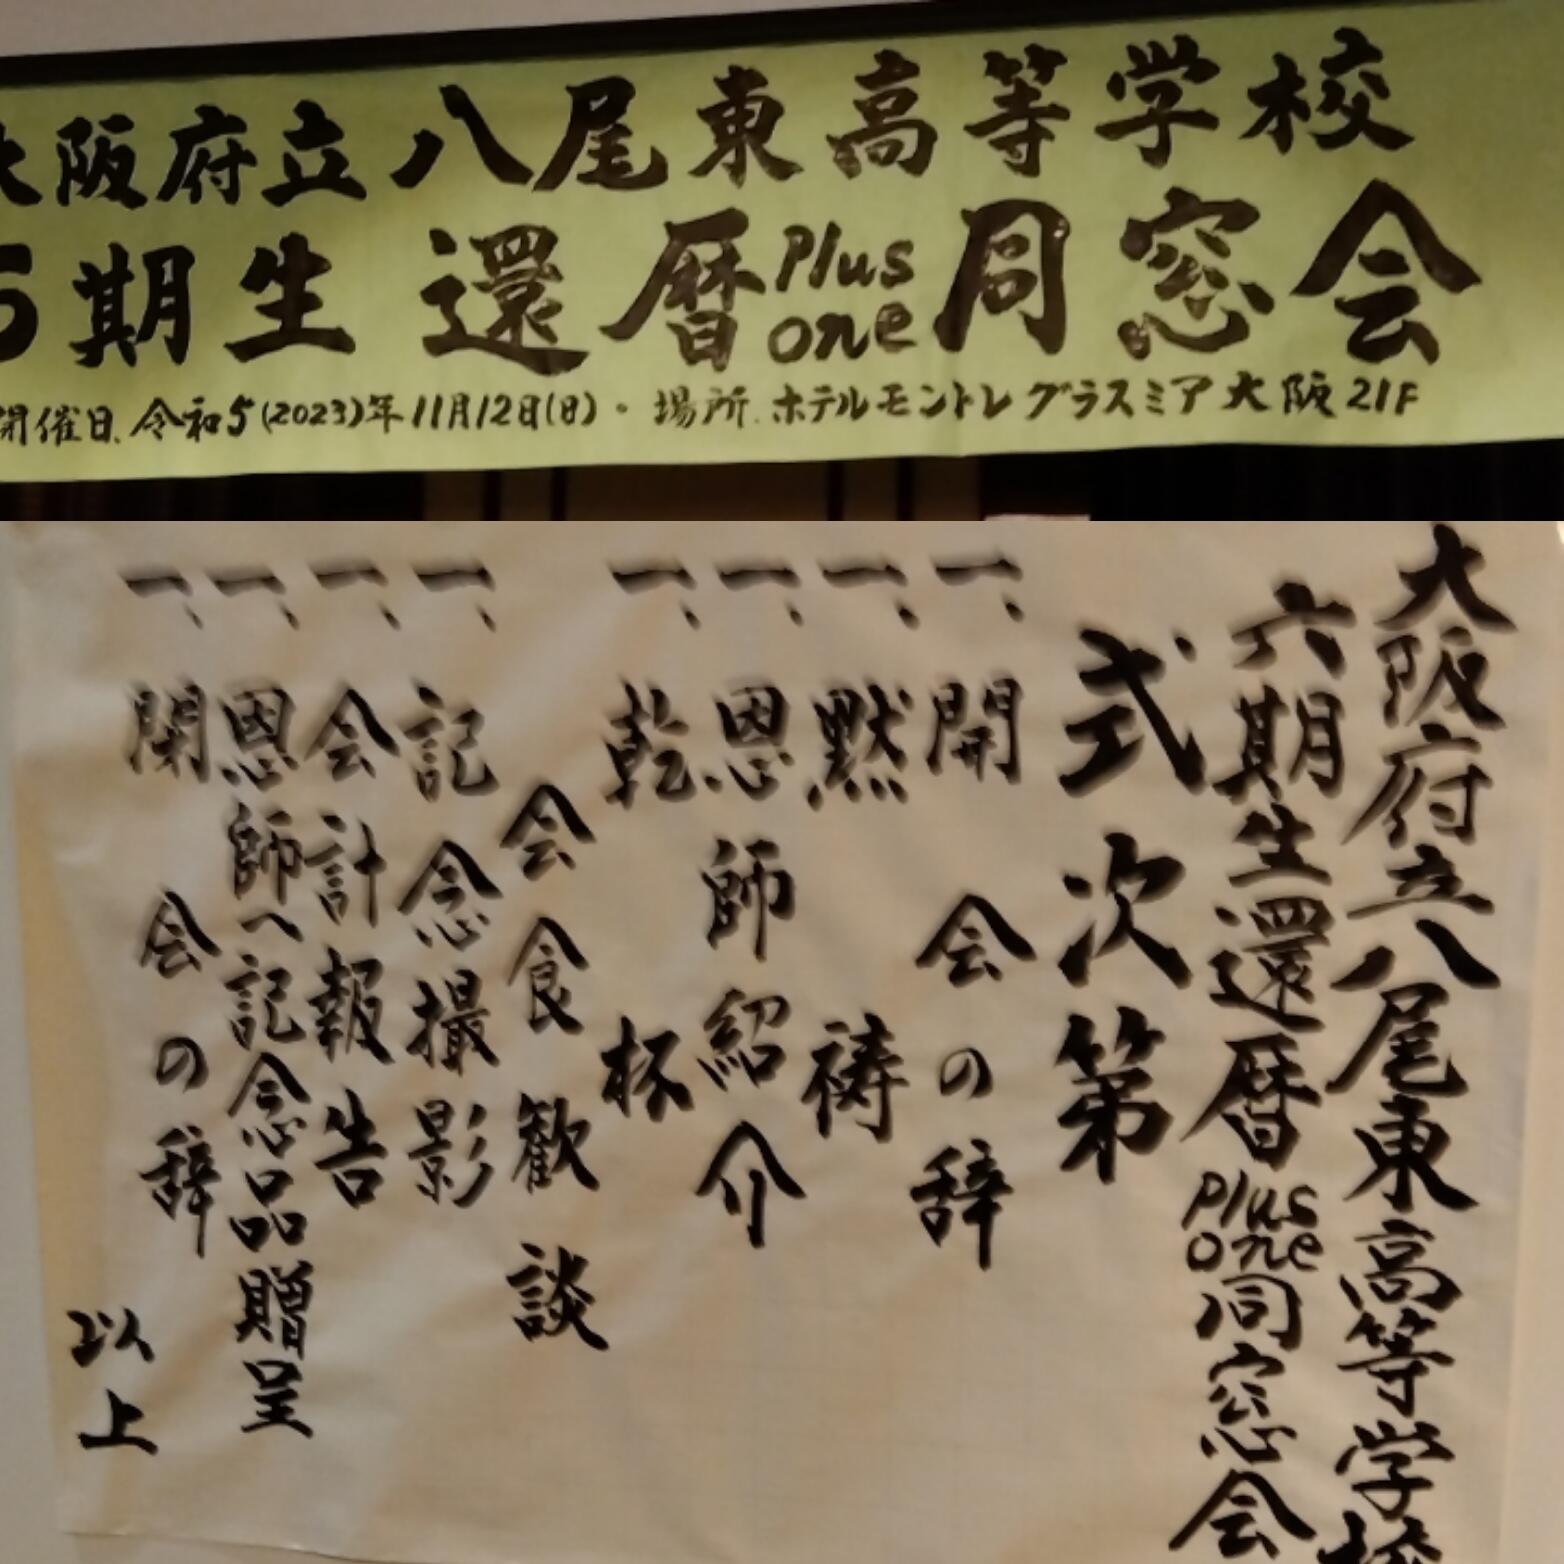 大阪府立八尾東高等学校
6期生 還暦 Plus one 同窓会
開催日.令和5(2023)年11月12日(日)・場所.ホテルモントレグラスミア大阪21F
大阪府立八尾東高等学校
六期生還暦 Plus one 同窓会
式次第
一、開会の辞
一、黙祷
一、恩師紹介
一、乾杯
会食歓談
一、記念撮影
一、会計報告
一、恩師へ記念品贈呈
一、閉会の辞
以上